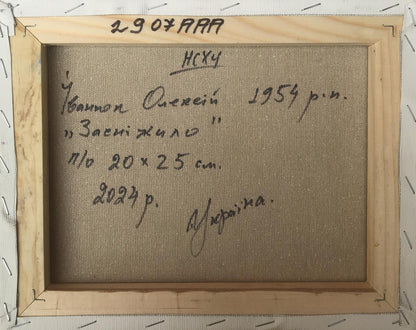 2907AAA
НСХУ
Іванюк Олексій 1954 р.н.
„Засніжило"
п/о 20×25 см.
2024 р.
Україна.